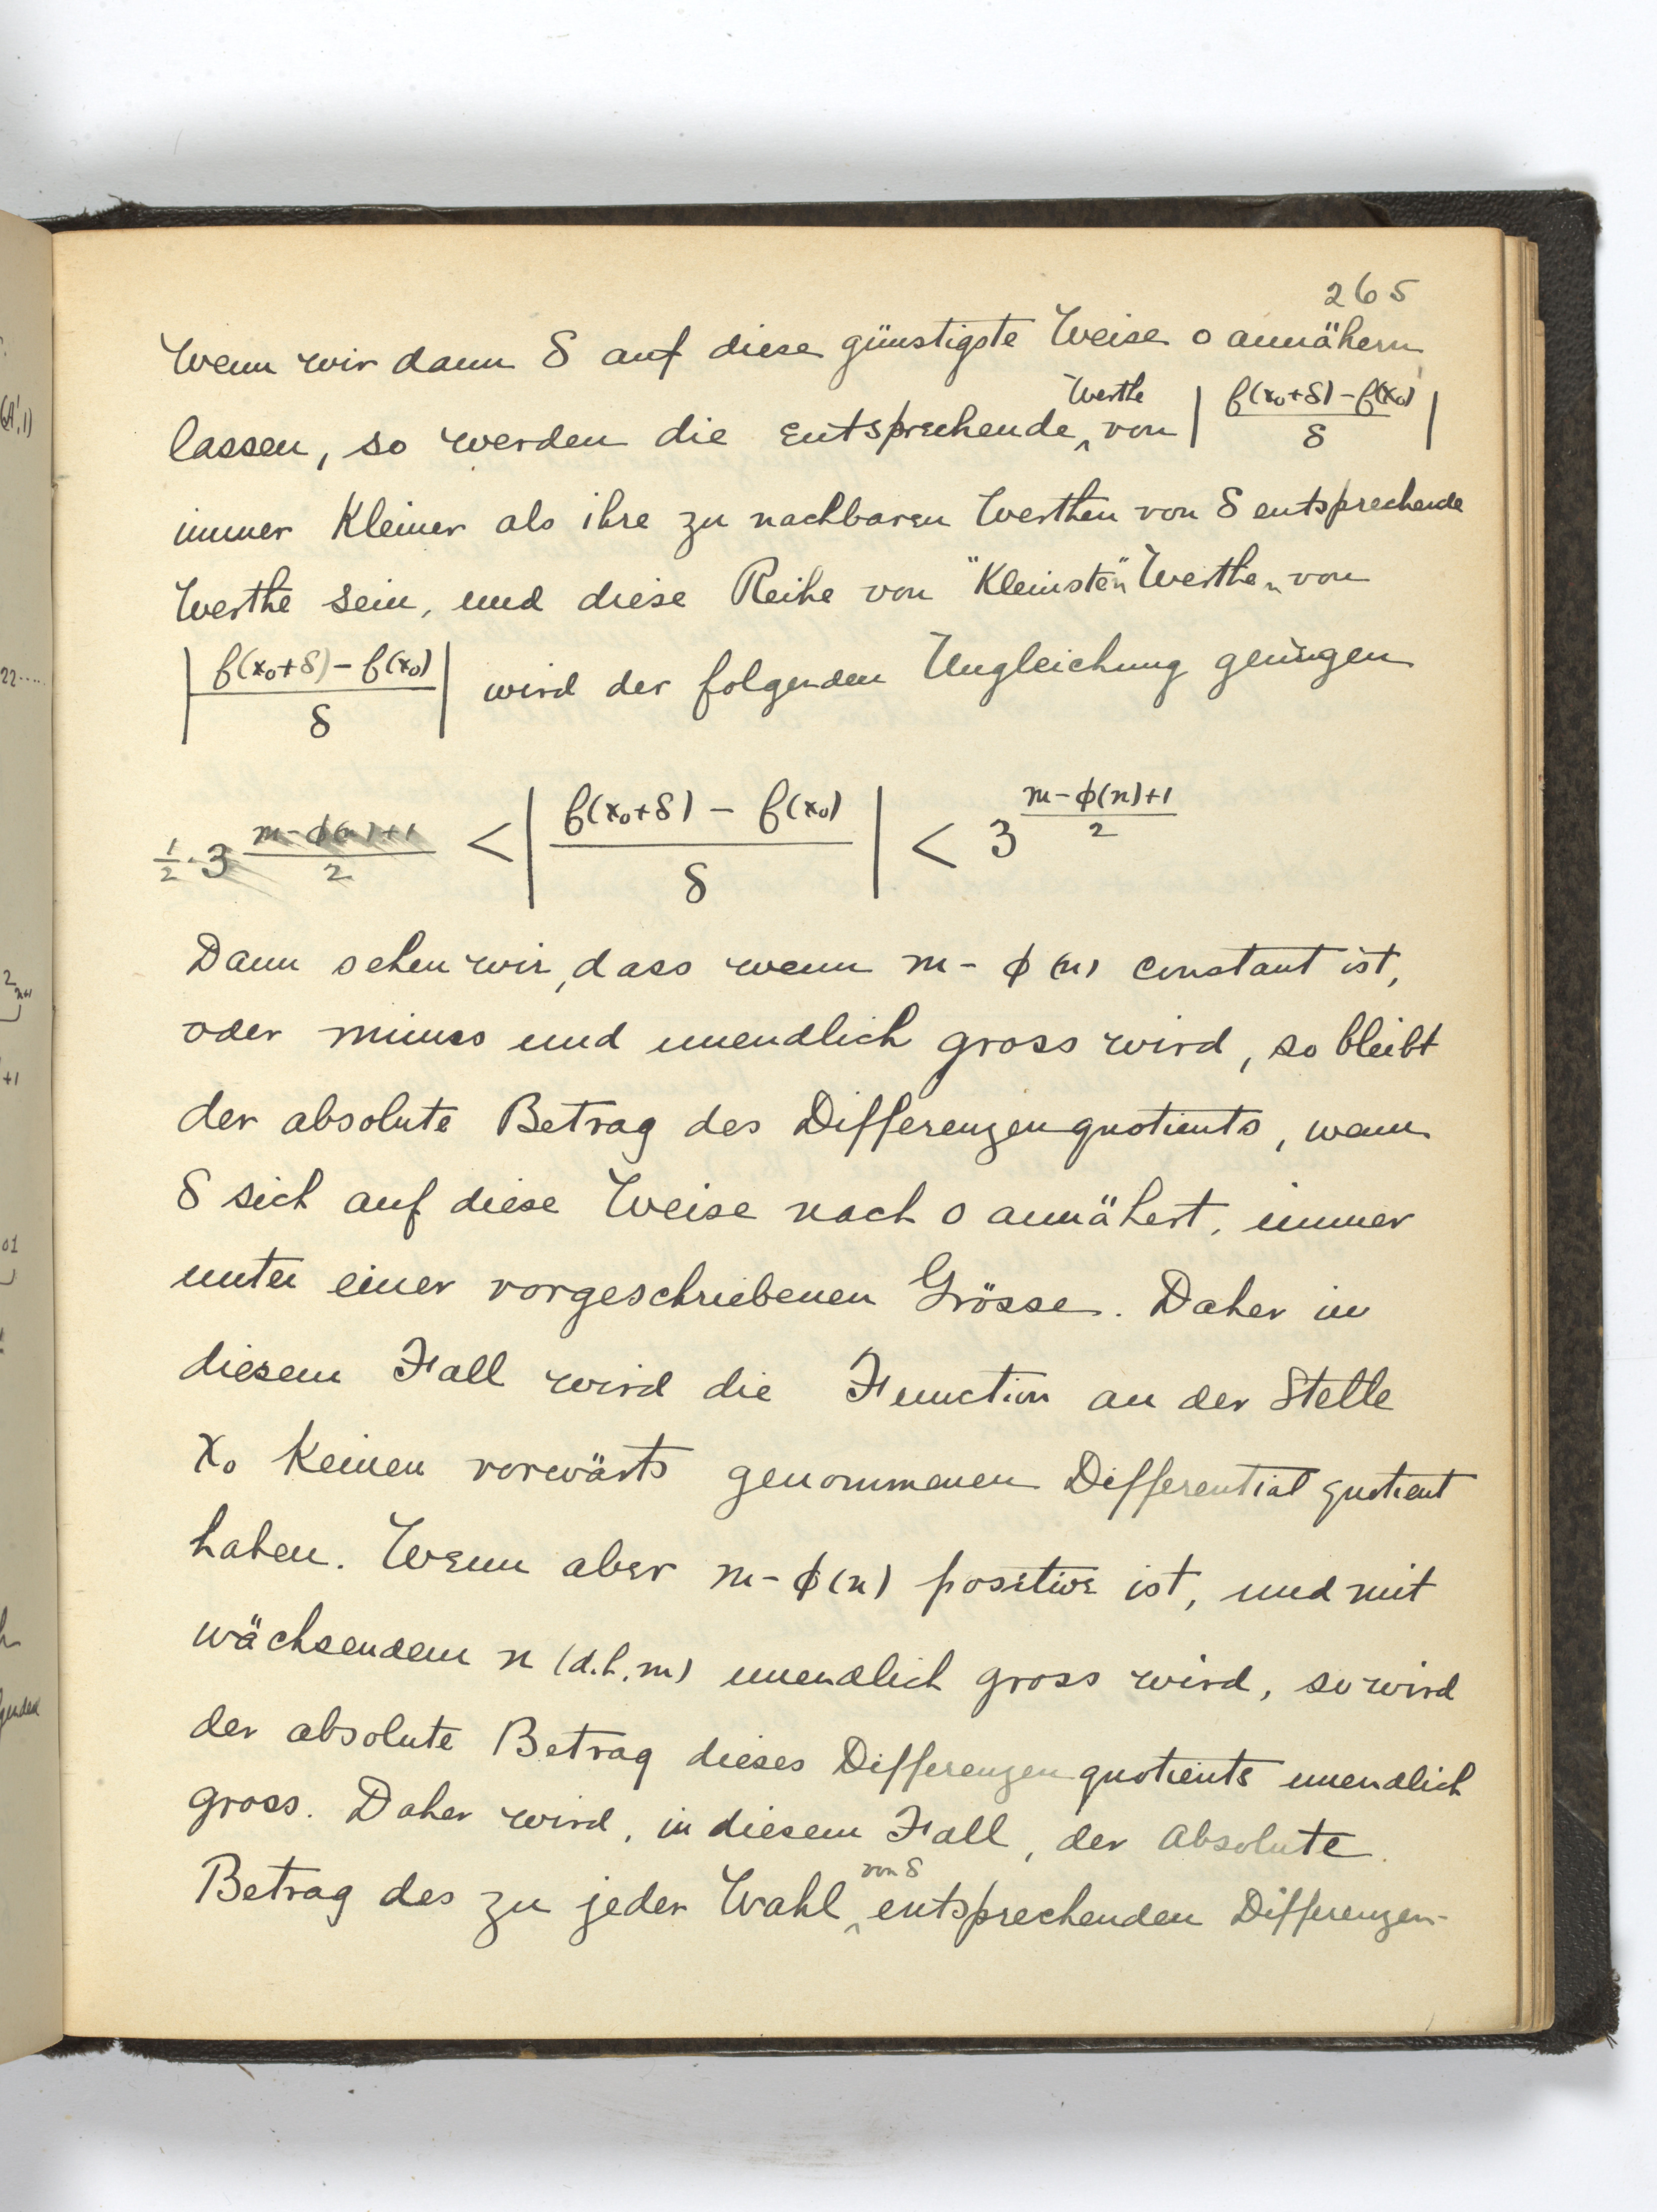 265
Wenn wir dann δ auf diese günstigste Weise 0 annähern
lassen, so werden die entsprechende Werthe von | (f(x₀+δ) - f(x₀)) / δ |
immer kleiner als ihre zu nachbaren Werthen von δ entsprechende
Werthe sein, und diese Reihe von "Kleinsten" Werthen von
| (f(x₀+δ) - f(x₀)) / δ | wird der folgenden Ungleichung genügen
1/2 · 3^((m-ϕ(n)+1)/2) < | (f(x₀+δ) - f(x₀)) / δ | < 3^((m-ϕ(n)+1)/2)
Dann sehen wir, dass wenn m - ϕ(n) constant ist,
oder minus und unendlich gross wird, so bleibt
der absolute Betrag des Differenzenquotients, wenn
δ sich auf diese Weise nach 0 annähert, immer
unter einer vorgeschriebenen Grösse. Daher in
diesem Fall wird die Function an der Stelle
x₀ keinen vorwärts genommenen Differentialquotient
haben. Wenn aber m - ϕ(n) positive ist, und mit
wächsendem n (d.h. m) unendlich gross wird, so wird
der absolute Betrag dieses Differenzenquotients unendlich
gross. Daher wird, in diesem Fall, der Absolute
Betrag des zu jeder Wahl von δ entsprechenden Differenzen-